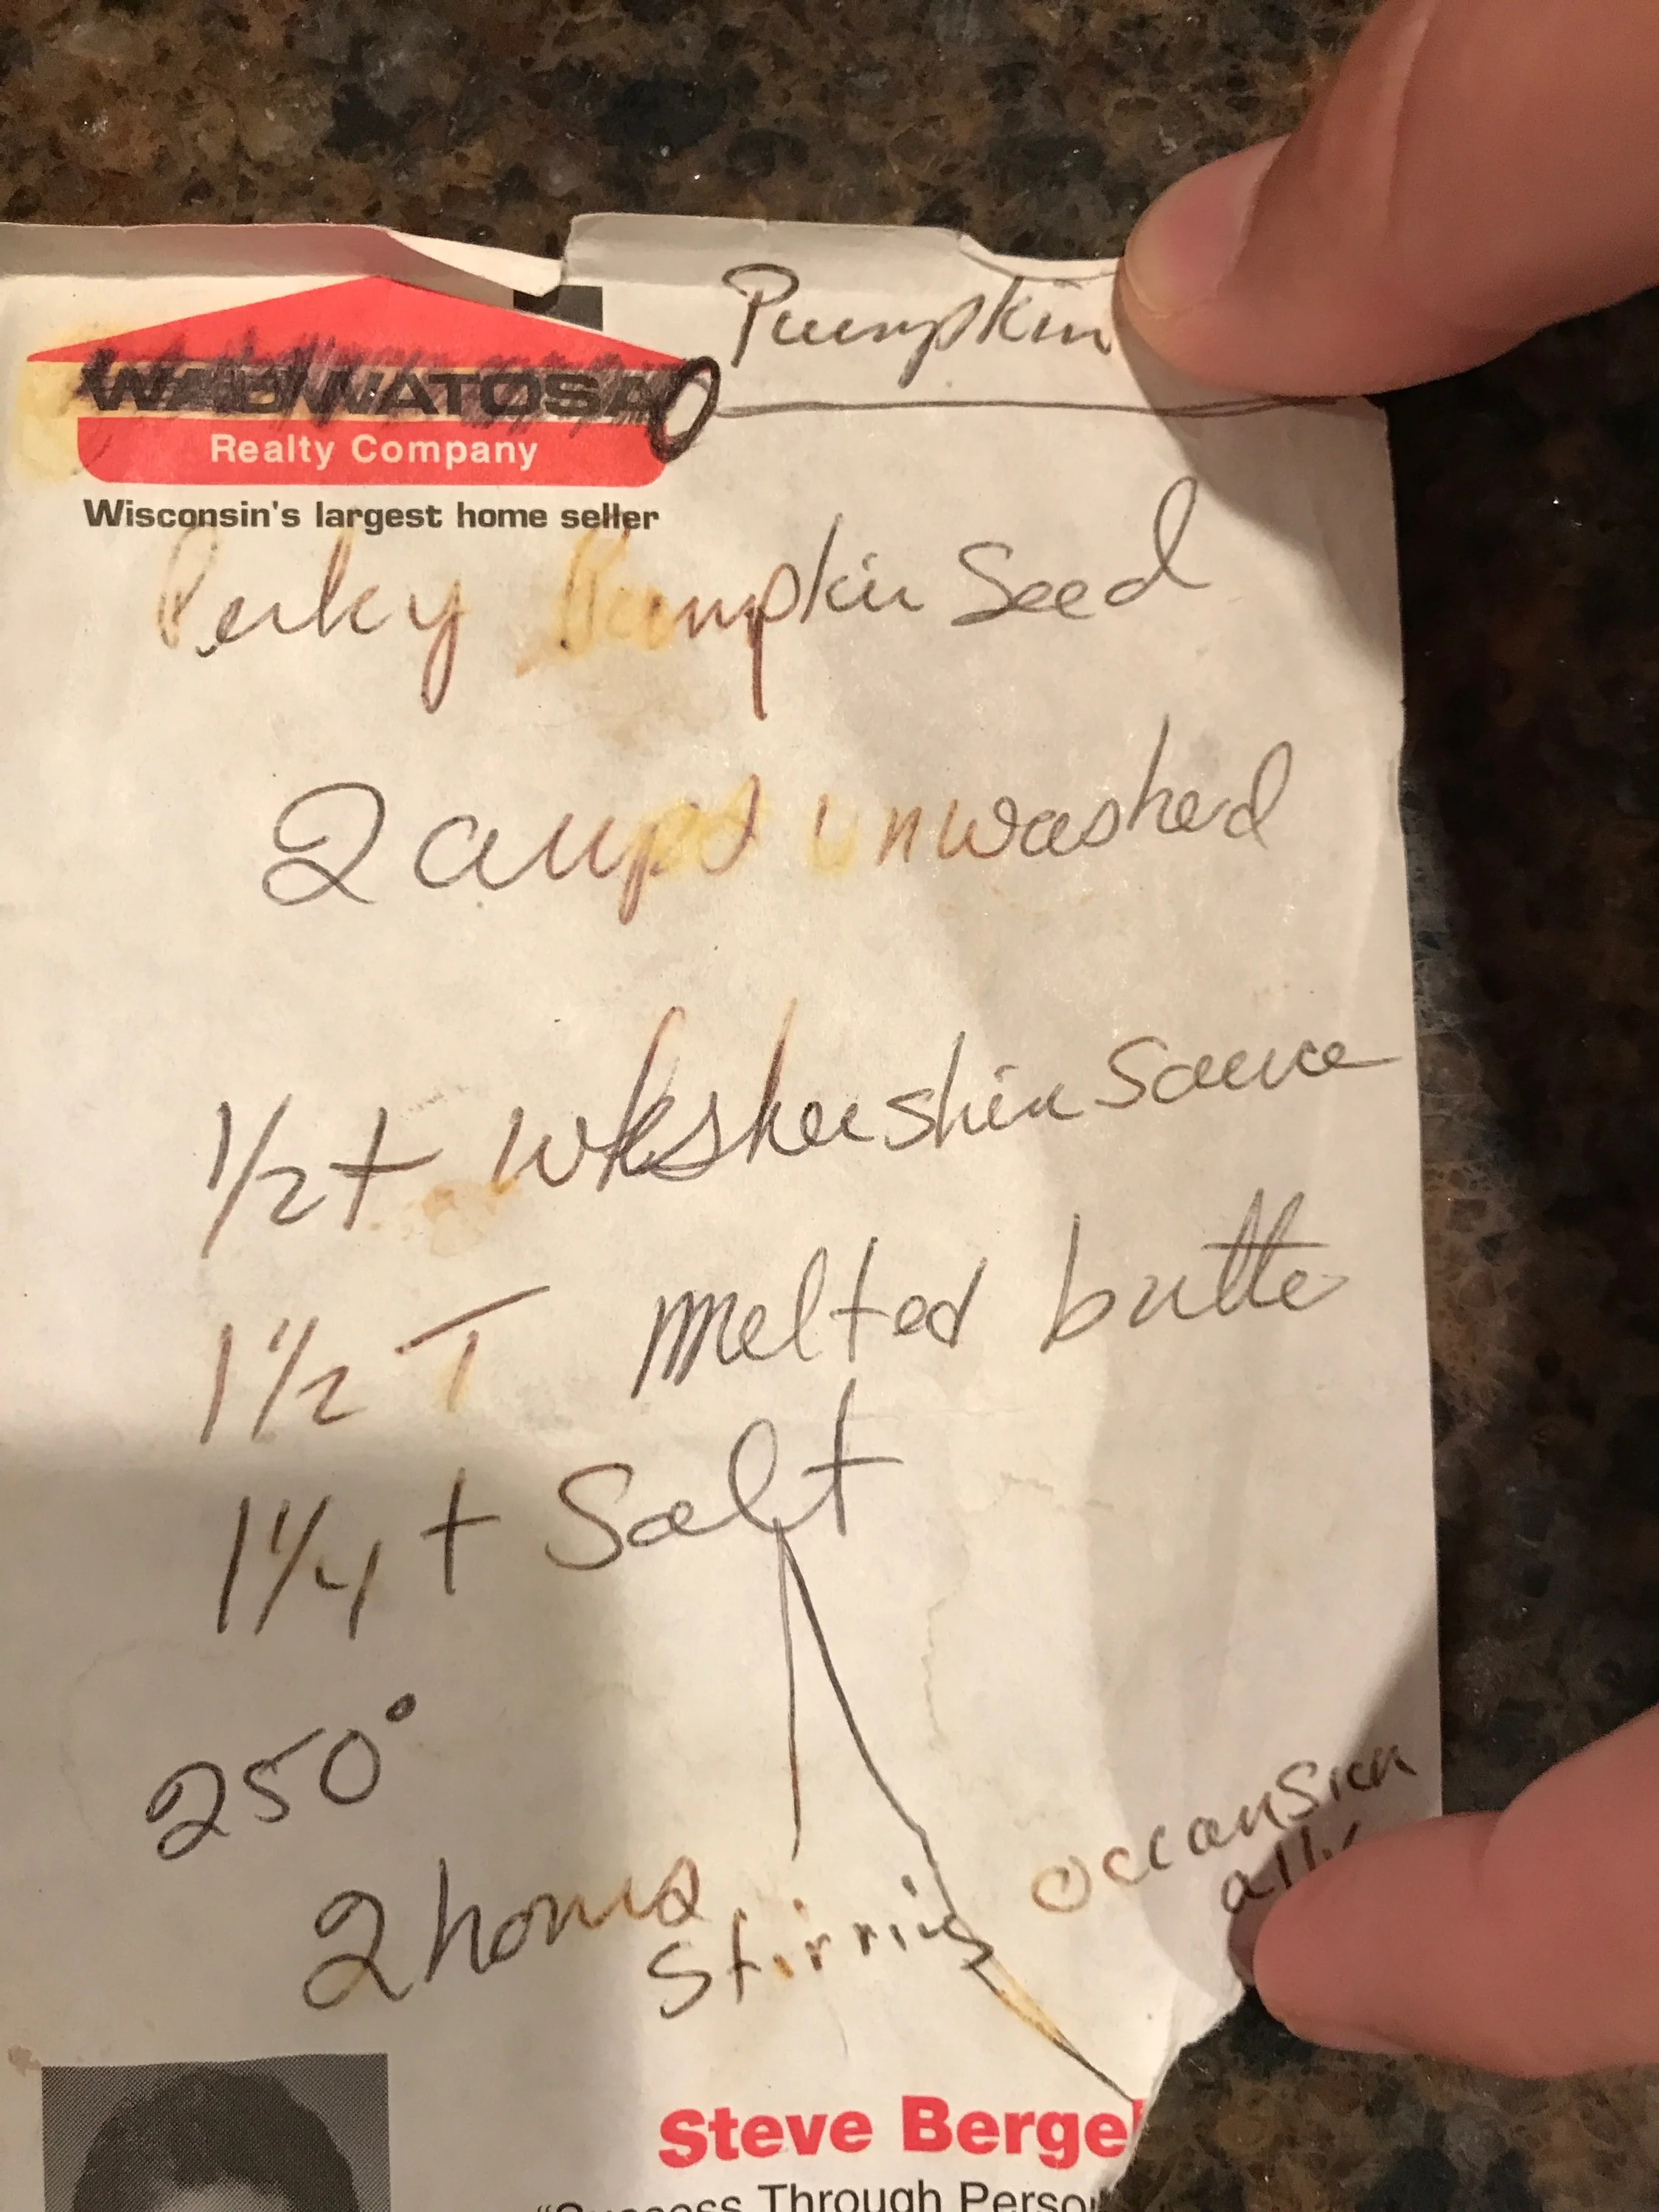 Pumpkin
WAUWATOSA
Realty Company
Wisconsin's largest home seller
Perky Pumpkin Seed
2 cups unwashed
1/2 t wkshershire Sauce
1 1/2 T melted butte
1 1/4 t Salt
250°
2 hours
Stirring occansion
ally
Steve Berge
"Success Through Perso